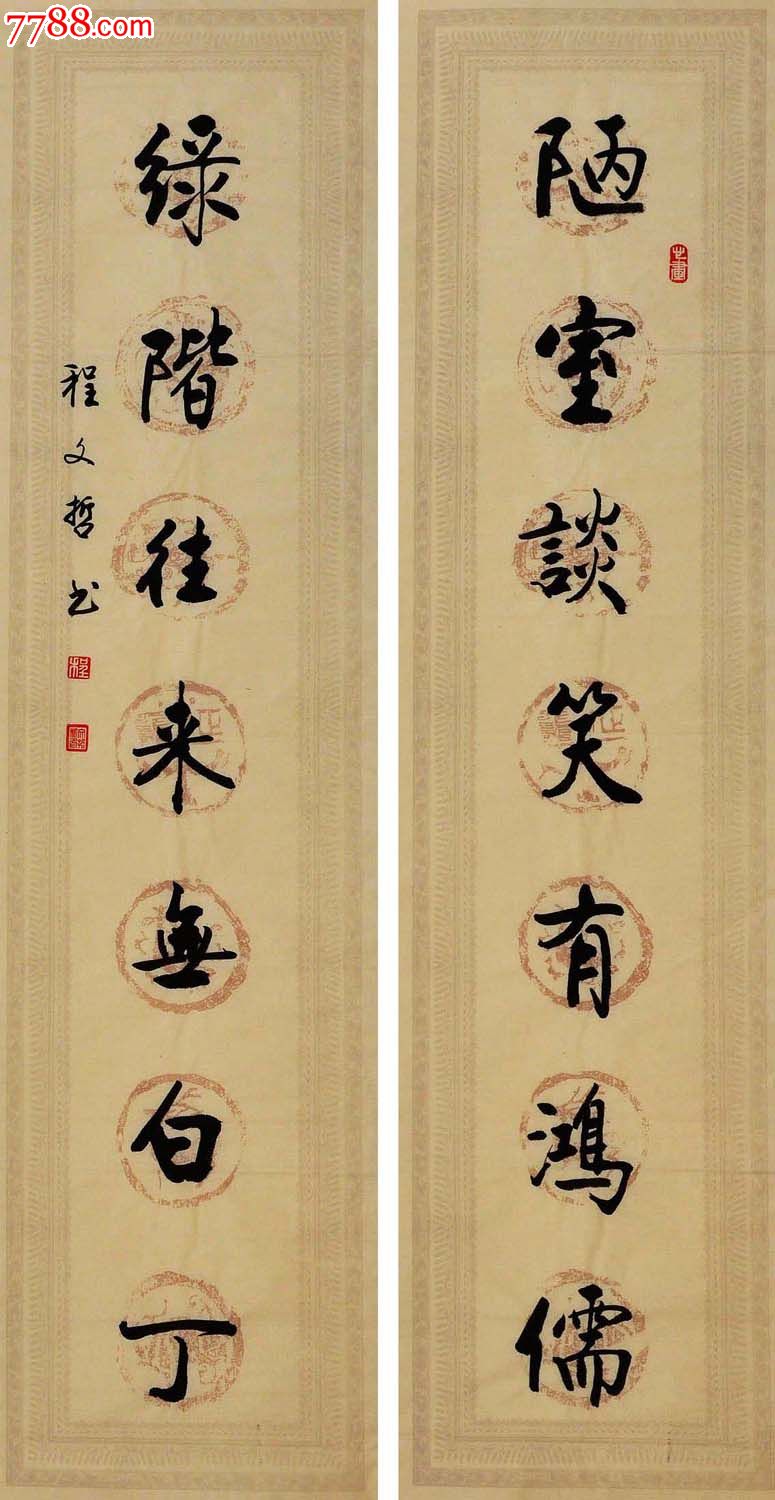 7788.com
陋室談笑有鴻儒
綠階往来無白丁
程文哲书
程